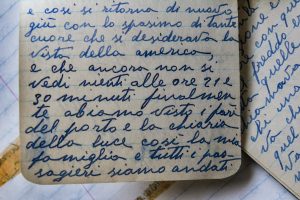 e cosi si ritorna di nuovo
giú con lo spasimo di tanto
cuore che si desiderava la
vista della america
e che ancora non si
vedi nienti alle ore 21 e
30 minuti finalmen
te abiamo visto i fari
del porto e la chiaria
della luce cosi la mia
famiglia e tutti i pas
sagieri siamo andati